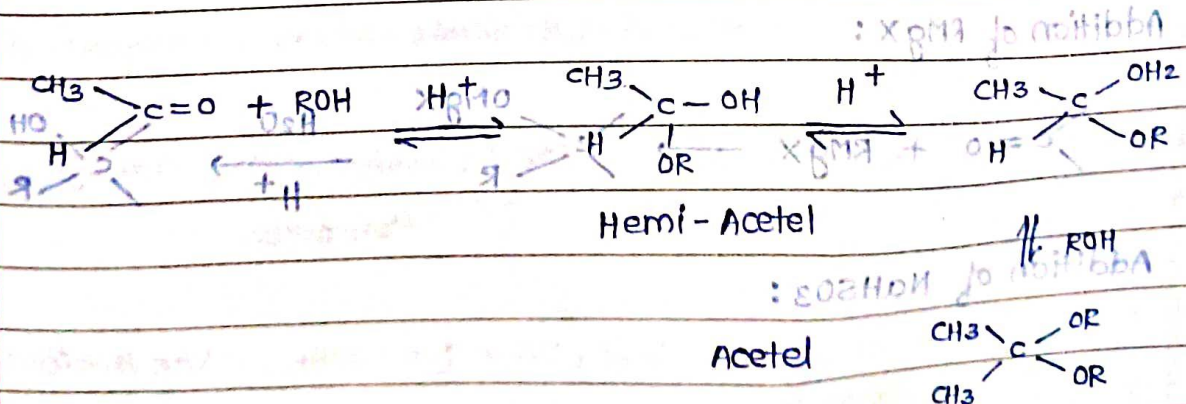 CH3 C=O + ROH H+ CH3 C-OH H+ CH3 C OH2
H H OR H OR
Hemi-Acetel
ROH
Acetel CH3 C OR
CH3 OR